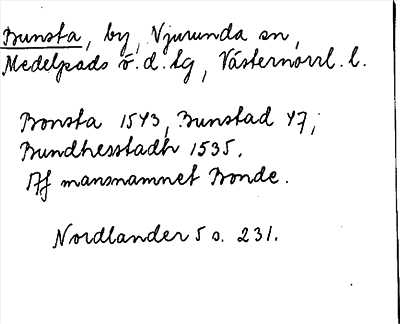 Bunsta, by, Njurunda sn,
Medelpads ö. d. tg, Västernorrl. l.
Bonsta 1543, Bunstad 47,
Bundhesstadh 1535.
Af mansnamnet Bonde.
Nordlander 5 s. 231.